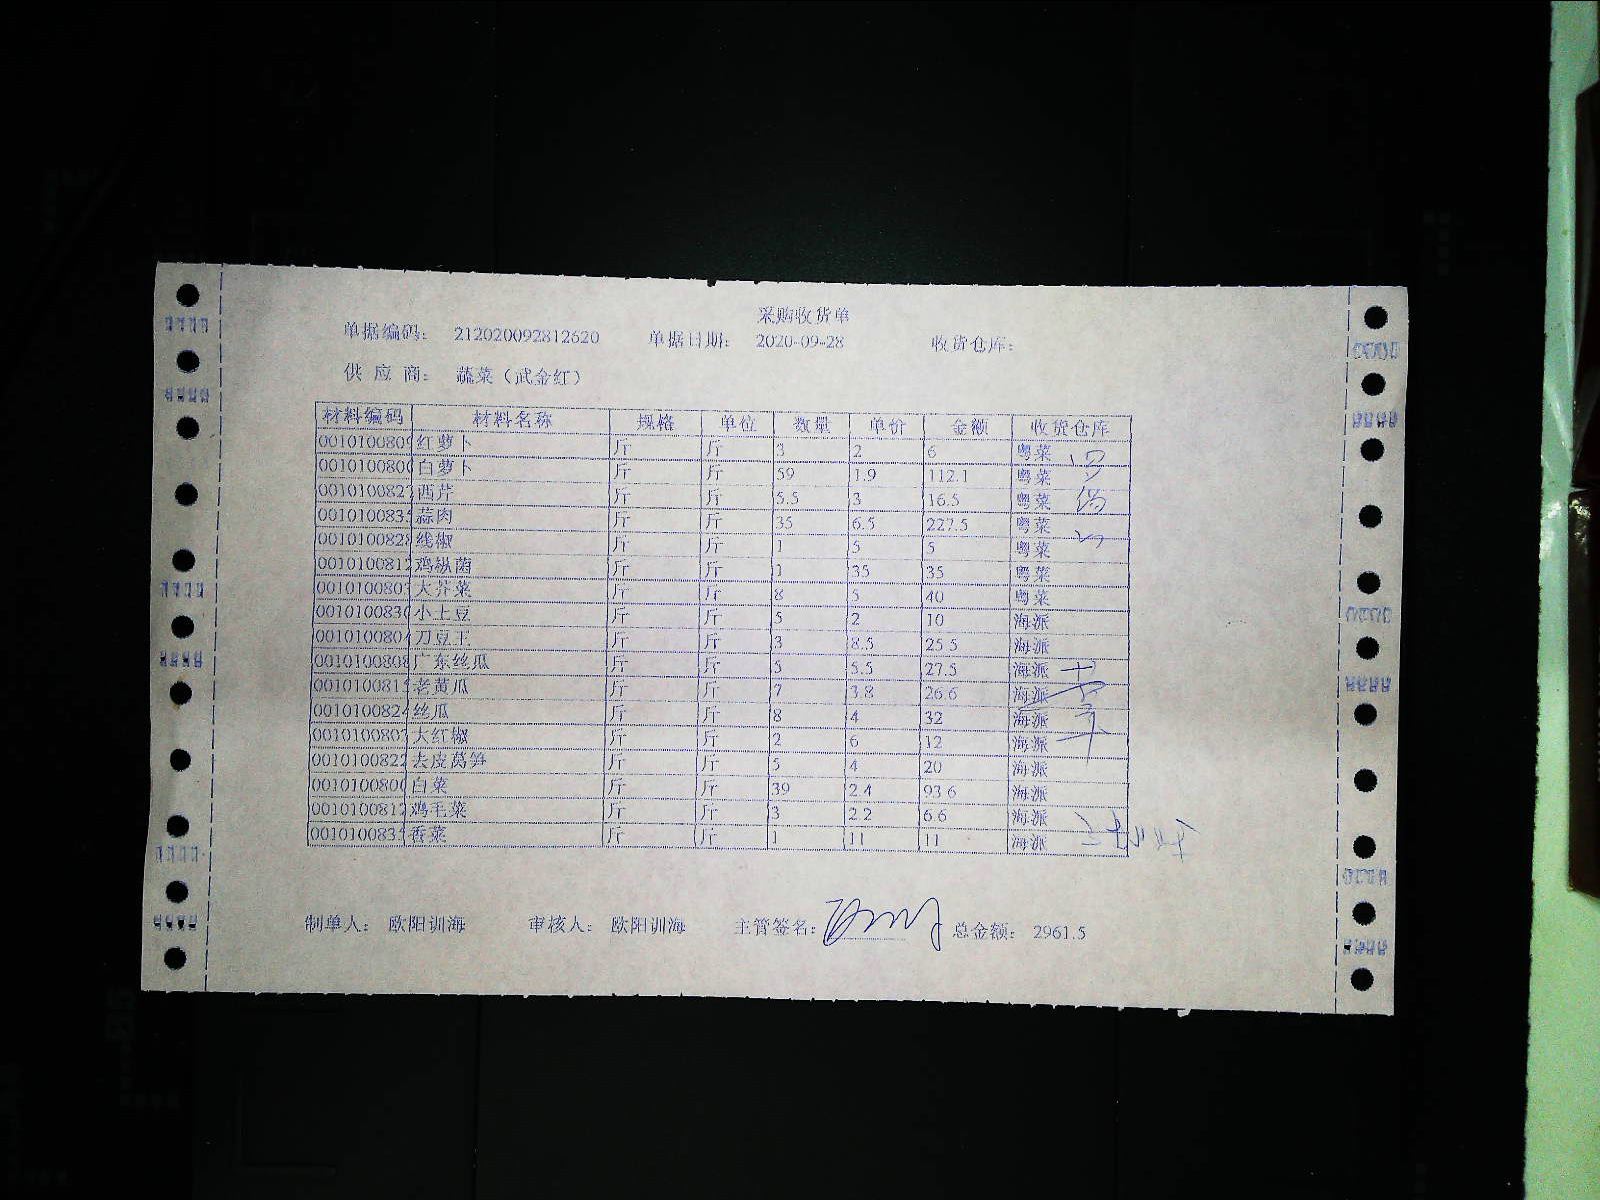 采购收货单
单据编码： 212020092812620 单据日期： 2020-09-28 收货仓库：
供 应 商： 蔬菜（武金红）
材料编码 材料名称 规格 单位 数量 单价 金额 收货仓库
0010100809 红萝卜 斤 斤 3 2 6 粤菜
0010100800 白萝卜 斤 斤 59 1.9 112.1 粤菜
001010082 西芹 斤 斤 5.5 3 16.5 粤菜
001010083 蒜肉 斤 斤 35 6.5 227.5 粤菜
001010082 线椒 斤 斤 1 5 5 粤菜
001010081 鸡枞菌 斤 斤 1 35 35 粤菜
001010080 大芥菜 斤 斤 8 5 40 粤菜
001010083 小土豆 斤 斤 5 2 10 海派
001010080 刀豆王 斤 斤 3 8.5 25.5 海派
0010100808 广东丝瓜 斤 斤 5 5.5 27.5 海派
001010081 老黄瓜 斤 斤 7 3.8 26.6 海派
001010082 丝瓜 斤 斤 8 4 32 海派
001010080 大红椒 斤 斤 2 6 12 海派
0010100822 去皮莴笋 斤 斤 5 4 20 海派
0010100800 白菜 斤 斤 39 2.4 93.6 海派
001010081 鸡毛菜 斤 斤 3 2.2 6.6 海派
001010083 香菜 斤 斤 1 11 11 海派
制单人： 欧阳训海 审核人： 欧阳训海 主管签名： 总金额： 2961.5